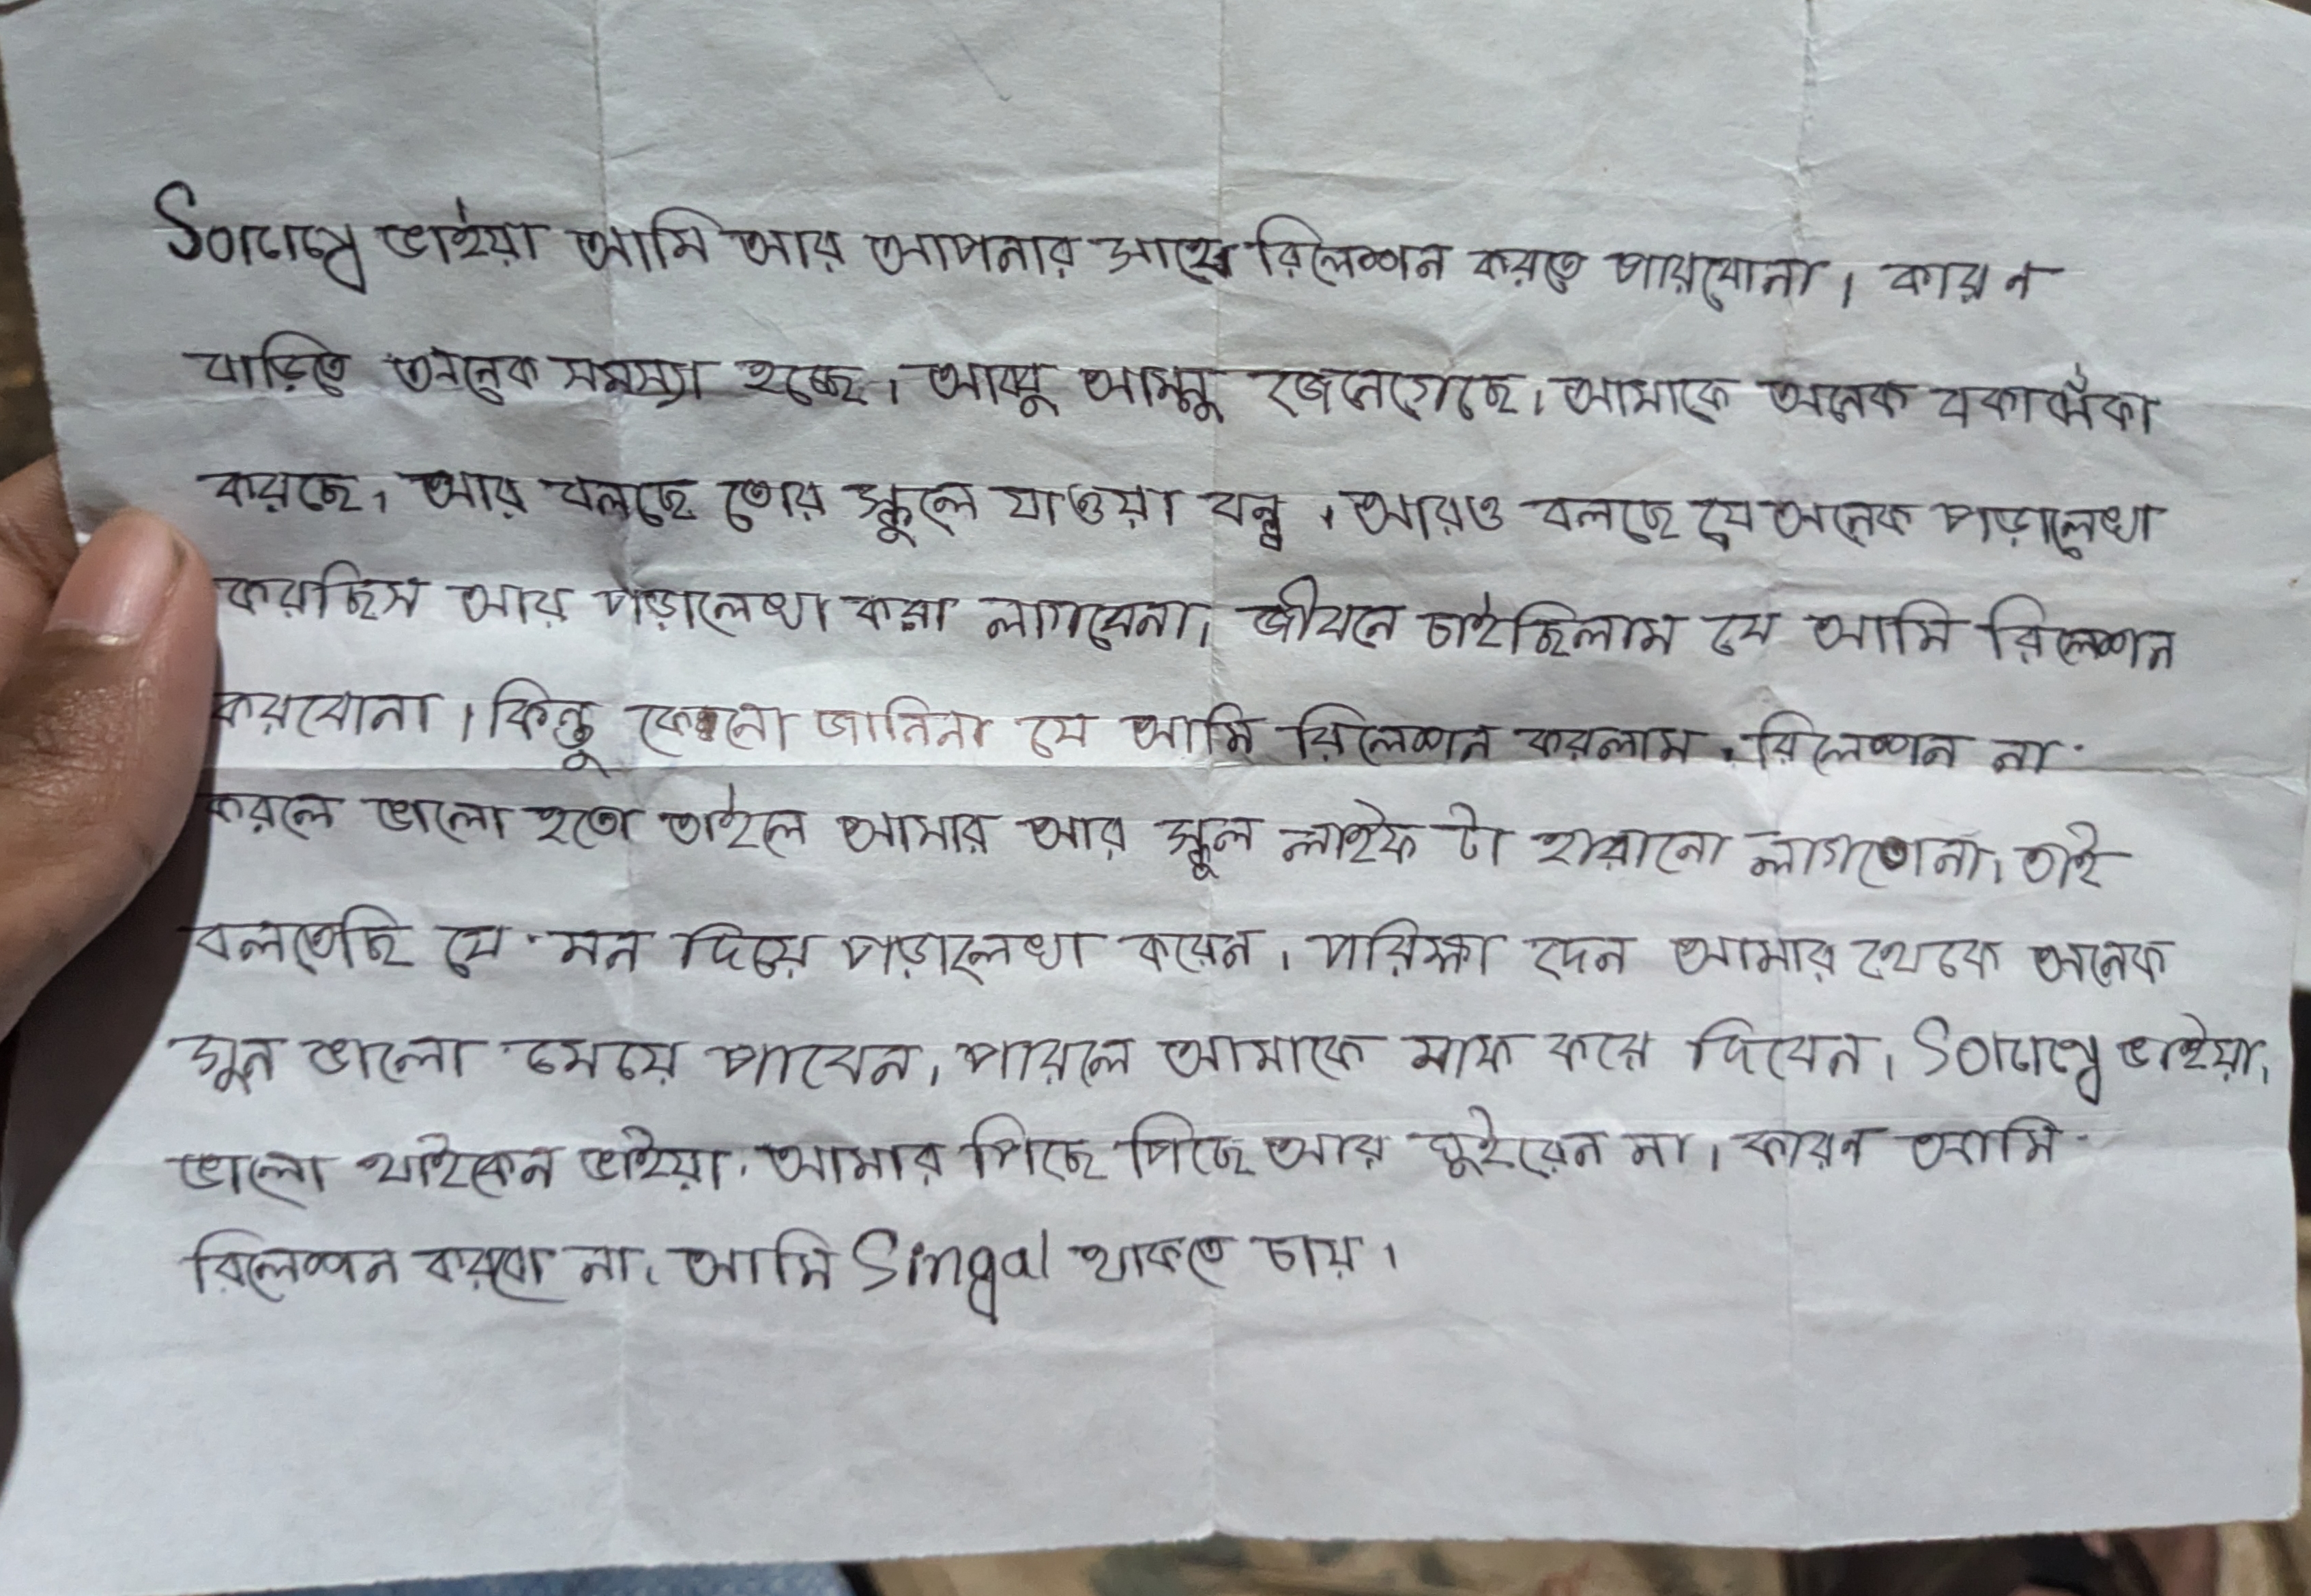 ভাইয়া আমি আর আপনার সাথে রিলেশন করতে পারবোনা। কারন
বাড়িতে অনেক সমস্যা হচ্ছে। আব্বু আম্মু জেনেগেছে। আমাকে অনেক বকাঝঁকা
করছে। আর বলছে তোর স্কুলে যাওয়া বন্ধ। আরও বলছে যে অনেক পড়ালেখা
করছিস আর পড়ালেখা করা লাগবেনা। জীবনে চাইছিলাম যে আমি রিলেশন
করবোনা। কিন্তু কেনো জানিনা যে আমি রিলেশন করলাম। রিলেশন না
করলে ভালো হতো তাইলে আমার আর স্কুল লাইফ টা হারানো লাগতোনা। তাই
বলতেছি যে মন দিয়ে পড়ালেখা করেন। পরিক্ষা দেন আমার থেকে অনেক
গুন ভালো মেয়ে পাবেন। পারলে আমাকে মাফ করে দিবেন। ভাইয়া।
ভালো থাইকেন ভাইয়া। আমার পিছে পিছে আর ঘুইরেন না। কারন আমি
রিলেশন করবো না। আমি Singal থাকতে চায়।